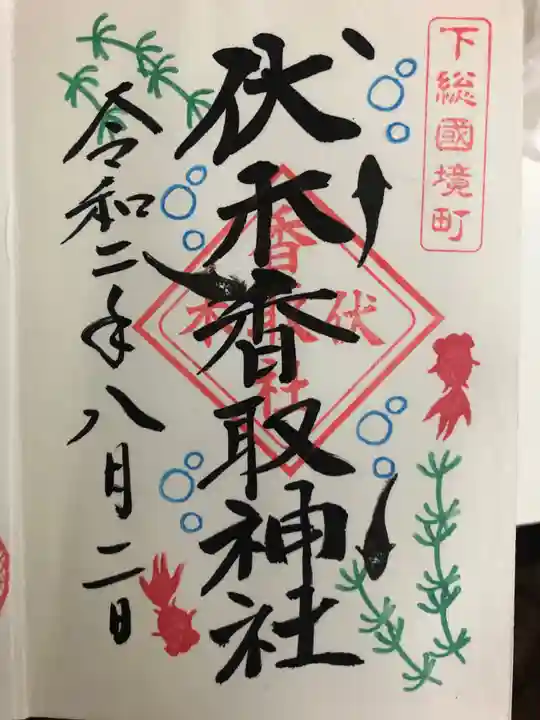 下総國境町
伏木香取神社
香取
伏木
社
令和二年八月二日